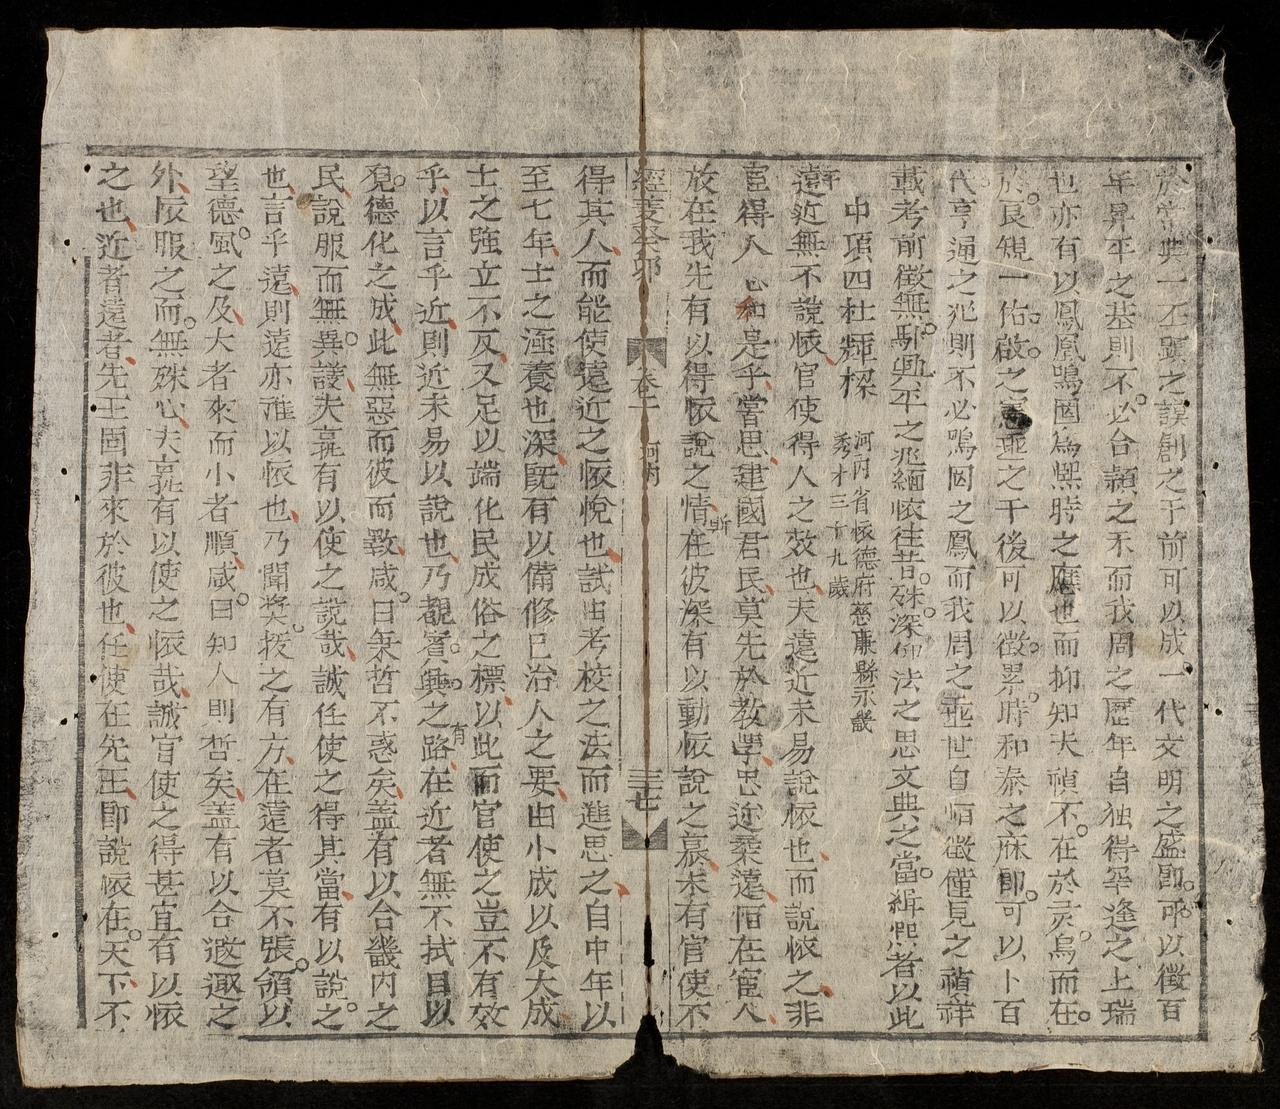 於常典一丕顯之謨創之于前可以成一代文明之盛即可以徵百
年昇平之基則不必台顓之禾而我周之歷年自独得罕逢之上瑞
也亦有以鳳凰鳴國為熙時之應也而抑知夫禎不在於灵鳥而在
於良規一佑啟之憲垂之于後可以徵累時和泰之庥即可以卜百
代亨通之兆則不必鳴岡之鳳而我周之垂世自恒徵僅見之禎祥
載考前徵無馴興平之兆緬懷往昔殊深仰法之思文典之當緝熙者以此
中項四杜輝樑
河內省懷德府慈廉縣永畿
秀才三十九歲
遠近無不說懷官使得人之效也夫遠近未易說懷也而說懷之非
官得人心和是乎嘗思建國君民莫先於教學忠迩柔遠恒在官人
放在我先有以得懷說之情斯在彼深有以動懷說之慕未有官使不
經義癸卯 卷二 河內 三七
得其人而能使遠近之懷悅也試由考校之法而進思之自中年以
至七年士之涵養也深既有以備修己治人之要由小成以及大成
士之強立不反又足以端化民成俗之標以此而官使之豈不有效
乎以言乎近則近未易以說也乃覩賓興之路有在近者無不拭目以
覓德化之成此無惡而彼而斁咸曰秉哲不惑矣盖有以合畿内之
民說服而無異議夫孰有以使之說哉誠任使之得其當有以說之
也言乎遠則遠亦准以懷也乃聞奖抜之有方在遠者莫不張領以
望德風之及大者來而小者順咸曰知人則哲矣盖有以合遐諏之
外懷服之而無殊心夫孰有以使之懷哉誠官使之得甚宜有以懷
之也近者遠者先王固非來於彼也任使在先王即說懷在天下不